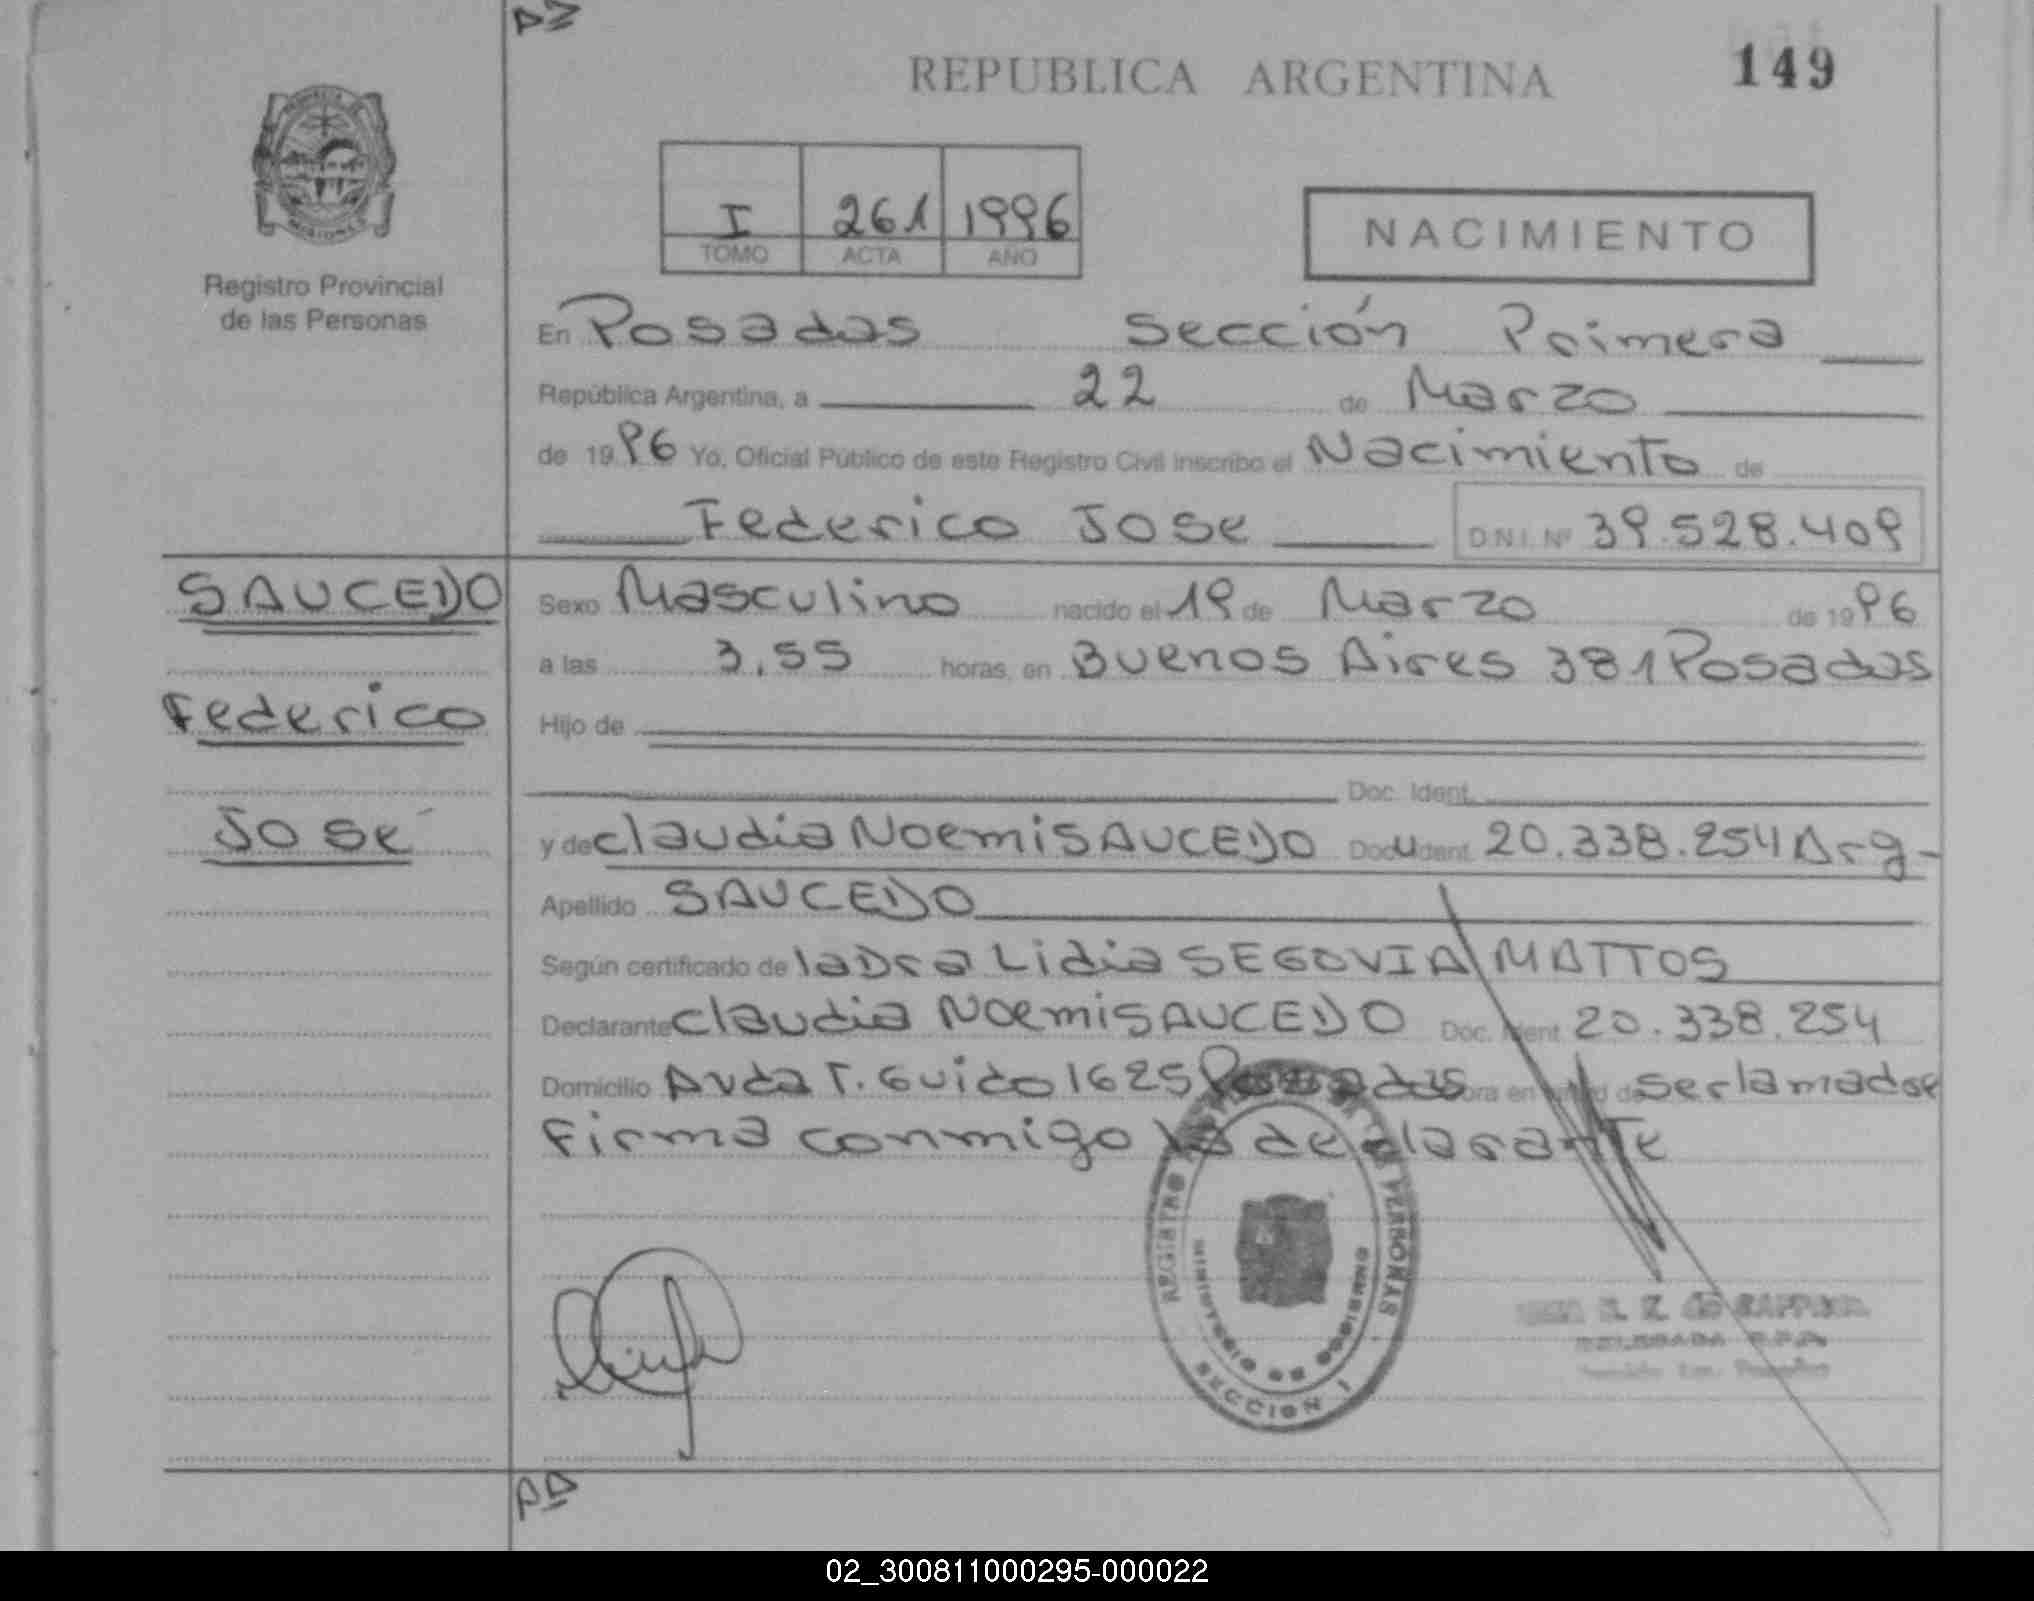 REPUBLICA ARGENTINA
149
I 261 1996
TOMO ACTA AÑO
NACIMIENTO
MISIONES
Registro Provincial
de las Personas
En Posadas Sección Primera
República Argentina, a 22 de Marzo
de 1996 Yo, Oficial Público de este Registro Civil inscribo el Nacimiento de
Federico Jose D.N.I. Nº 39.528.409
SAUCEDO
Federico
José
Sexo Masculino nacido el 19 de Marzo de 1996
a las 3.55 horas, en Buenos Aires 381 Posadas
Hijo de
Doc. Ident.
y de Claudia Noemi SAUCEDO Doc. Ident. 20.338.254 Arg-
Apellido SAUCEDO
Según certificado de la Dra Lidia SEGOVIA MATTOS
Declarante Claudia Noemi SAUCEDO Doc. Ident. 20.338.254
Domicilio Avda T. Guido 1625 Posadas obra en de ser la madre
Firma conmigo la declarante
REGISTRO PERSONAS
MINISTERIO DE GOBIERNO
SECCION I
DELEGADA R.P.P.
02_300811000295-000022